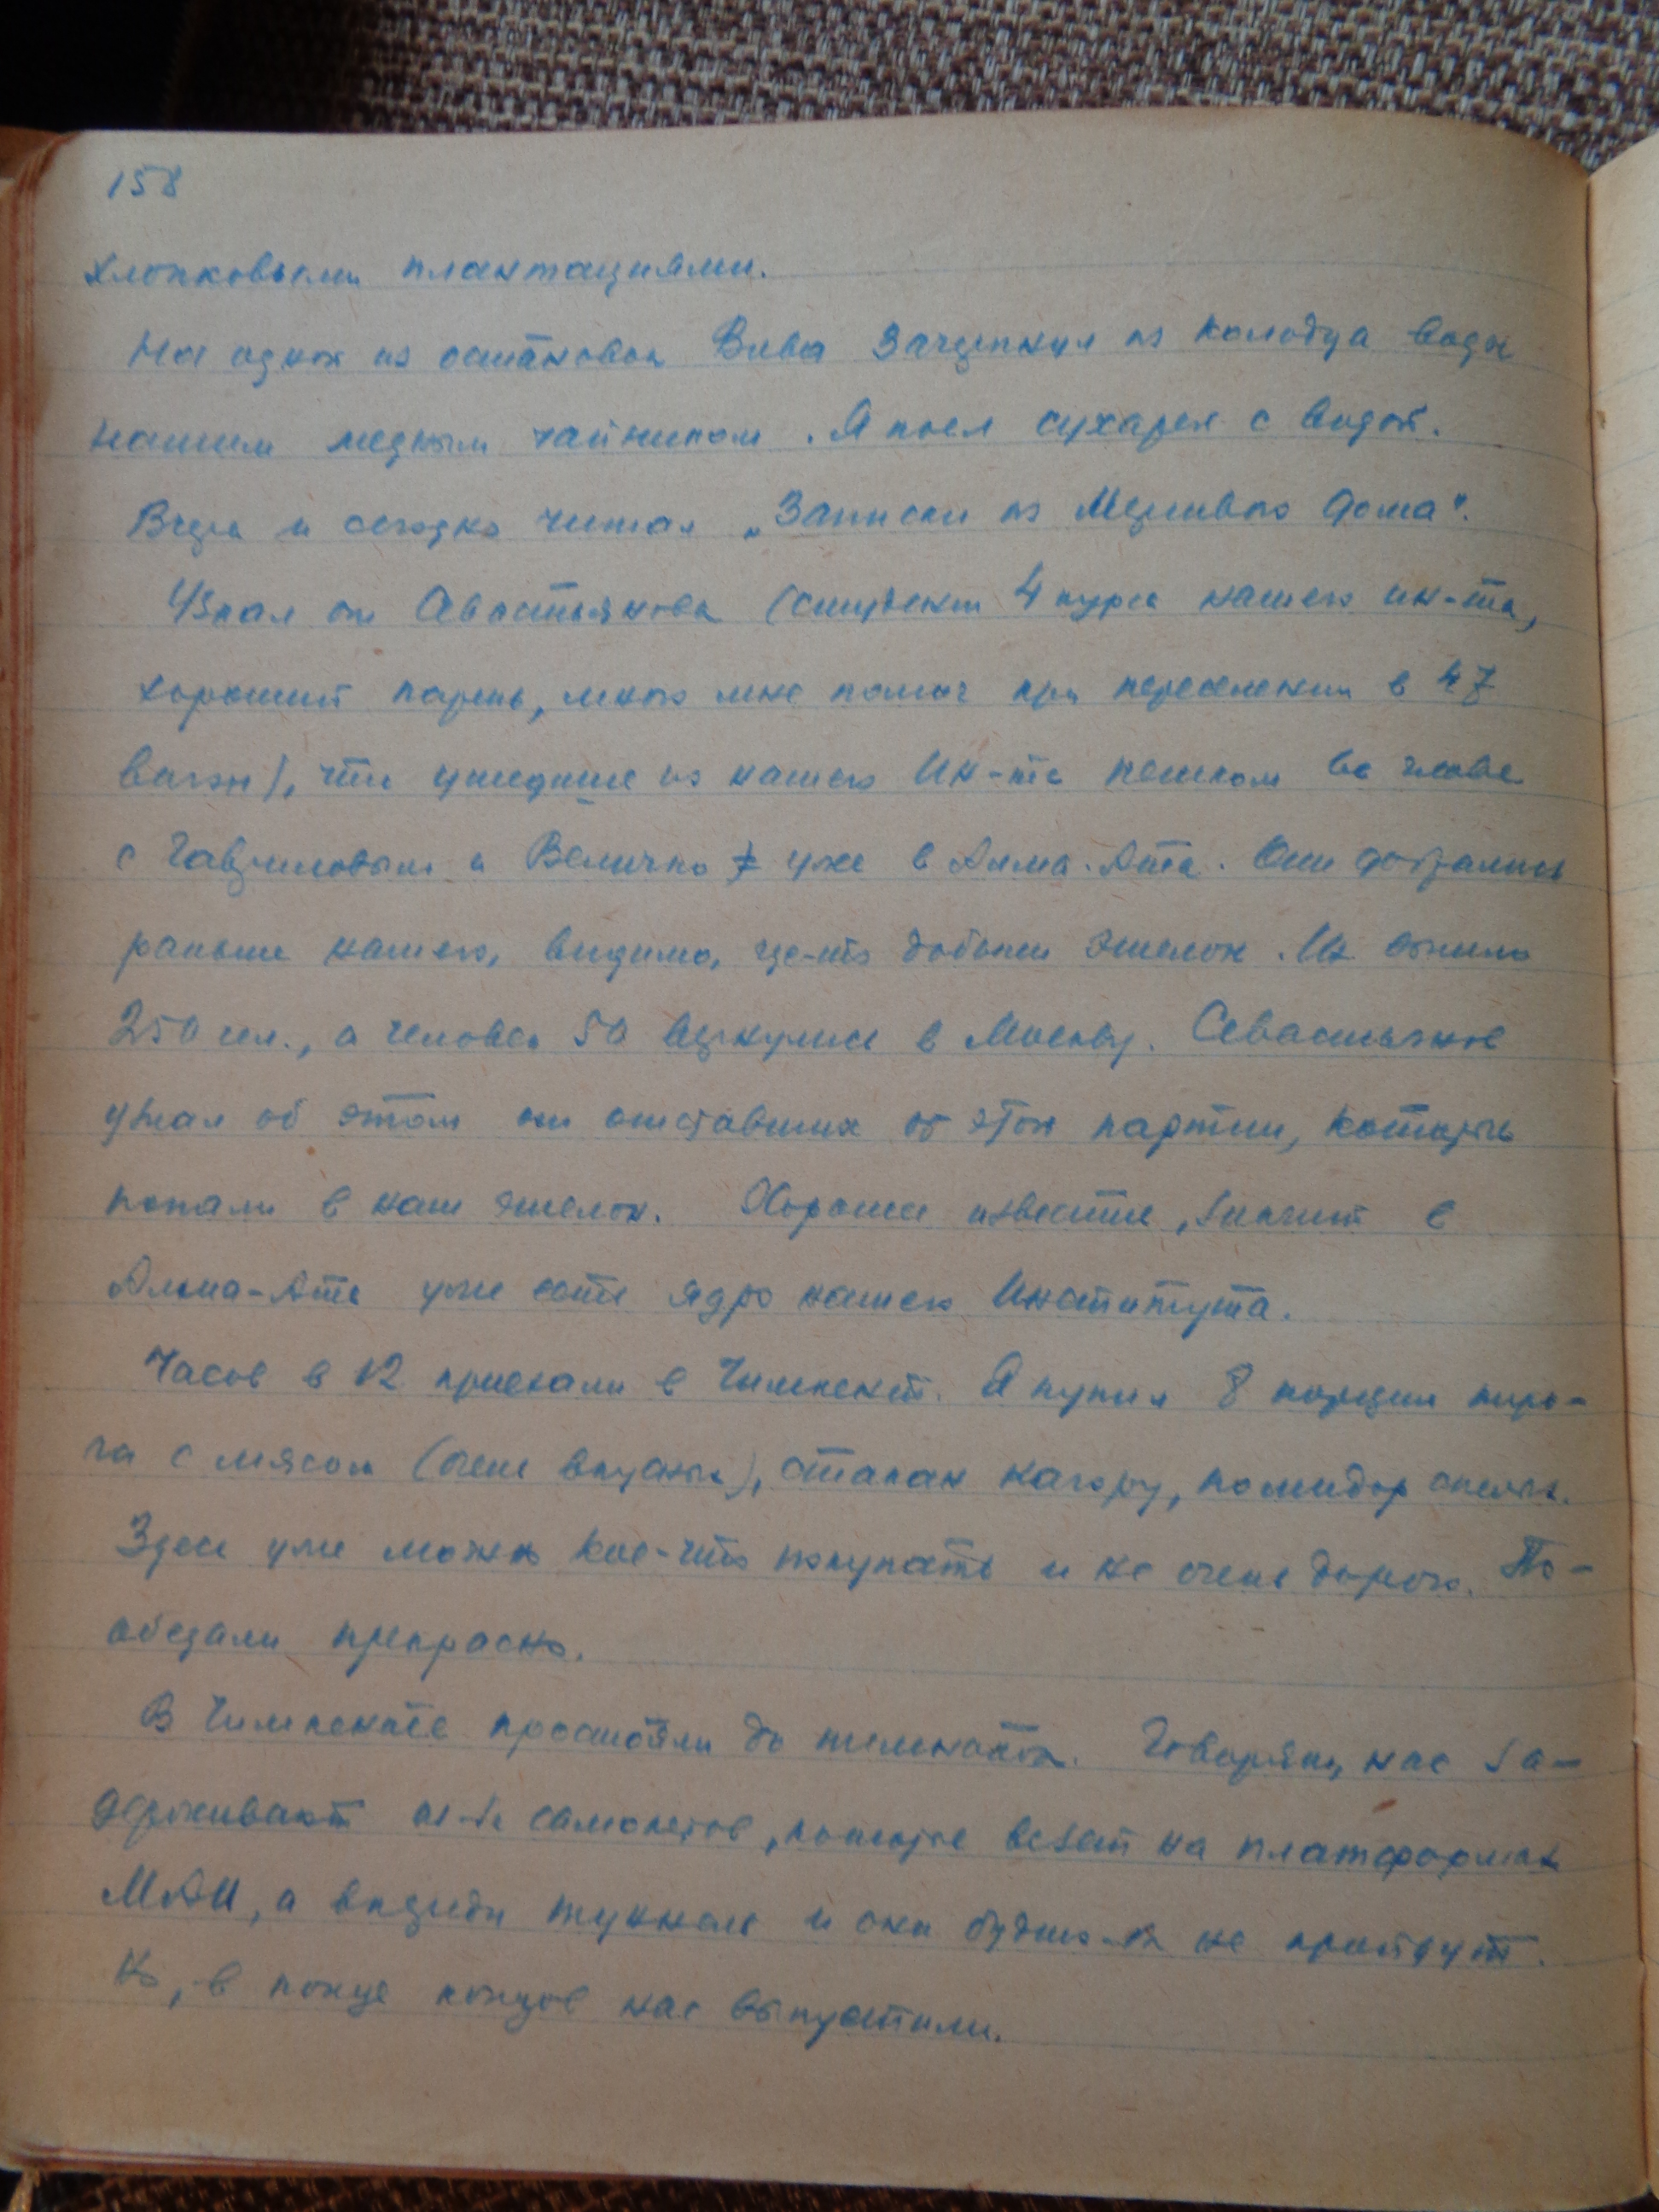 158
хлопковыми плантациями.
На одной из остановок Вива зачерпнул из колодца воды
нашим медным чайником. Я поел сухарей с водой.
Вчера и сегодня читал „Записки из Мертвого дома".
Узнал от Авастьянова (студент 4 курса нашего ин-та,
хороший парень, много мне помог при переселении в 47
вагон), что ушедшие из нашего Ин-та пешком во главе
с Гавриловым и Величко уже в Алма-Ата. Они добрались
раньше нашего, видимо, где-то добыли эшелон. Их было
250 чел., а человек 50 вернулись в Москву. Севастьянов
узнал об этом от отставших от этой партии, которые
попали в наш эшелон. Хорошее известие, значит в
Алма-Ате уже есть ядро нашего Института.
Часов в 12 приехали в Чимкент. Я купил 8 порций пиро-
га с мясом (очень вкусных), стакан кагору, помидор спелых.
Здесь уже можно кое-что покупать и не очень дорого. По-
обедали прекрасно.
В Чимкенте простояли до темноты. Говорят, нас за-
держивают из-за самолетов, которые везет на платформах
МАИ, а впереди туннель и они будто-бы не пройдут.
Но, в конце концов нас выпустили.